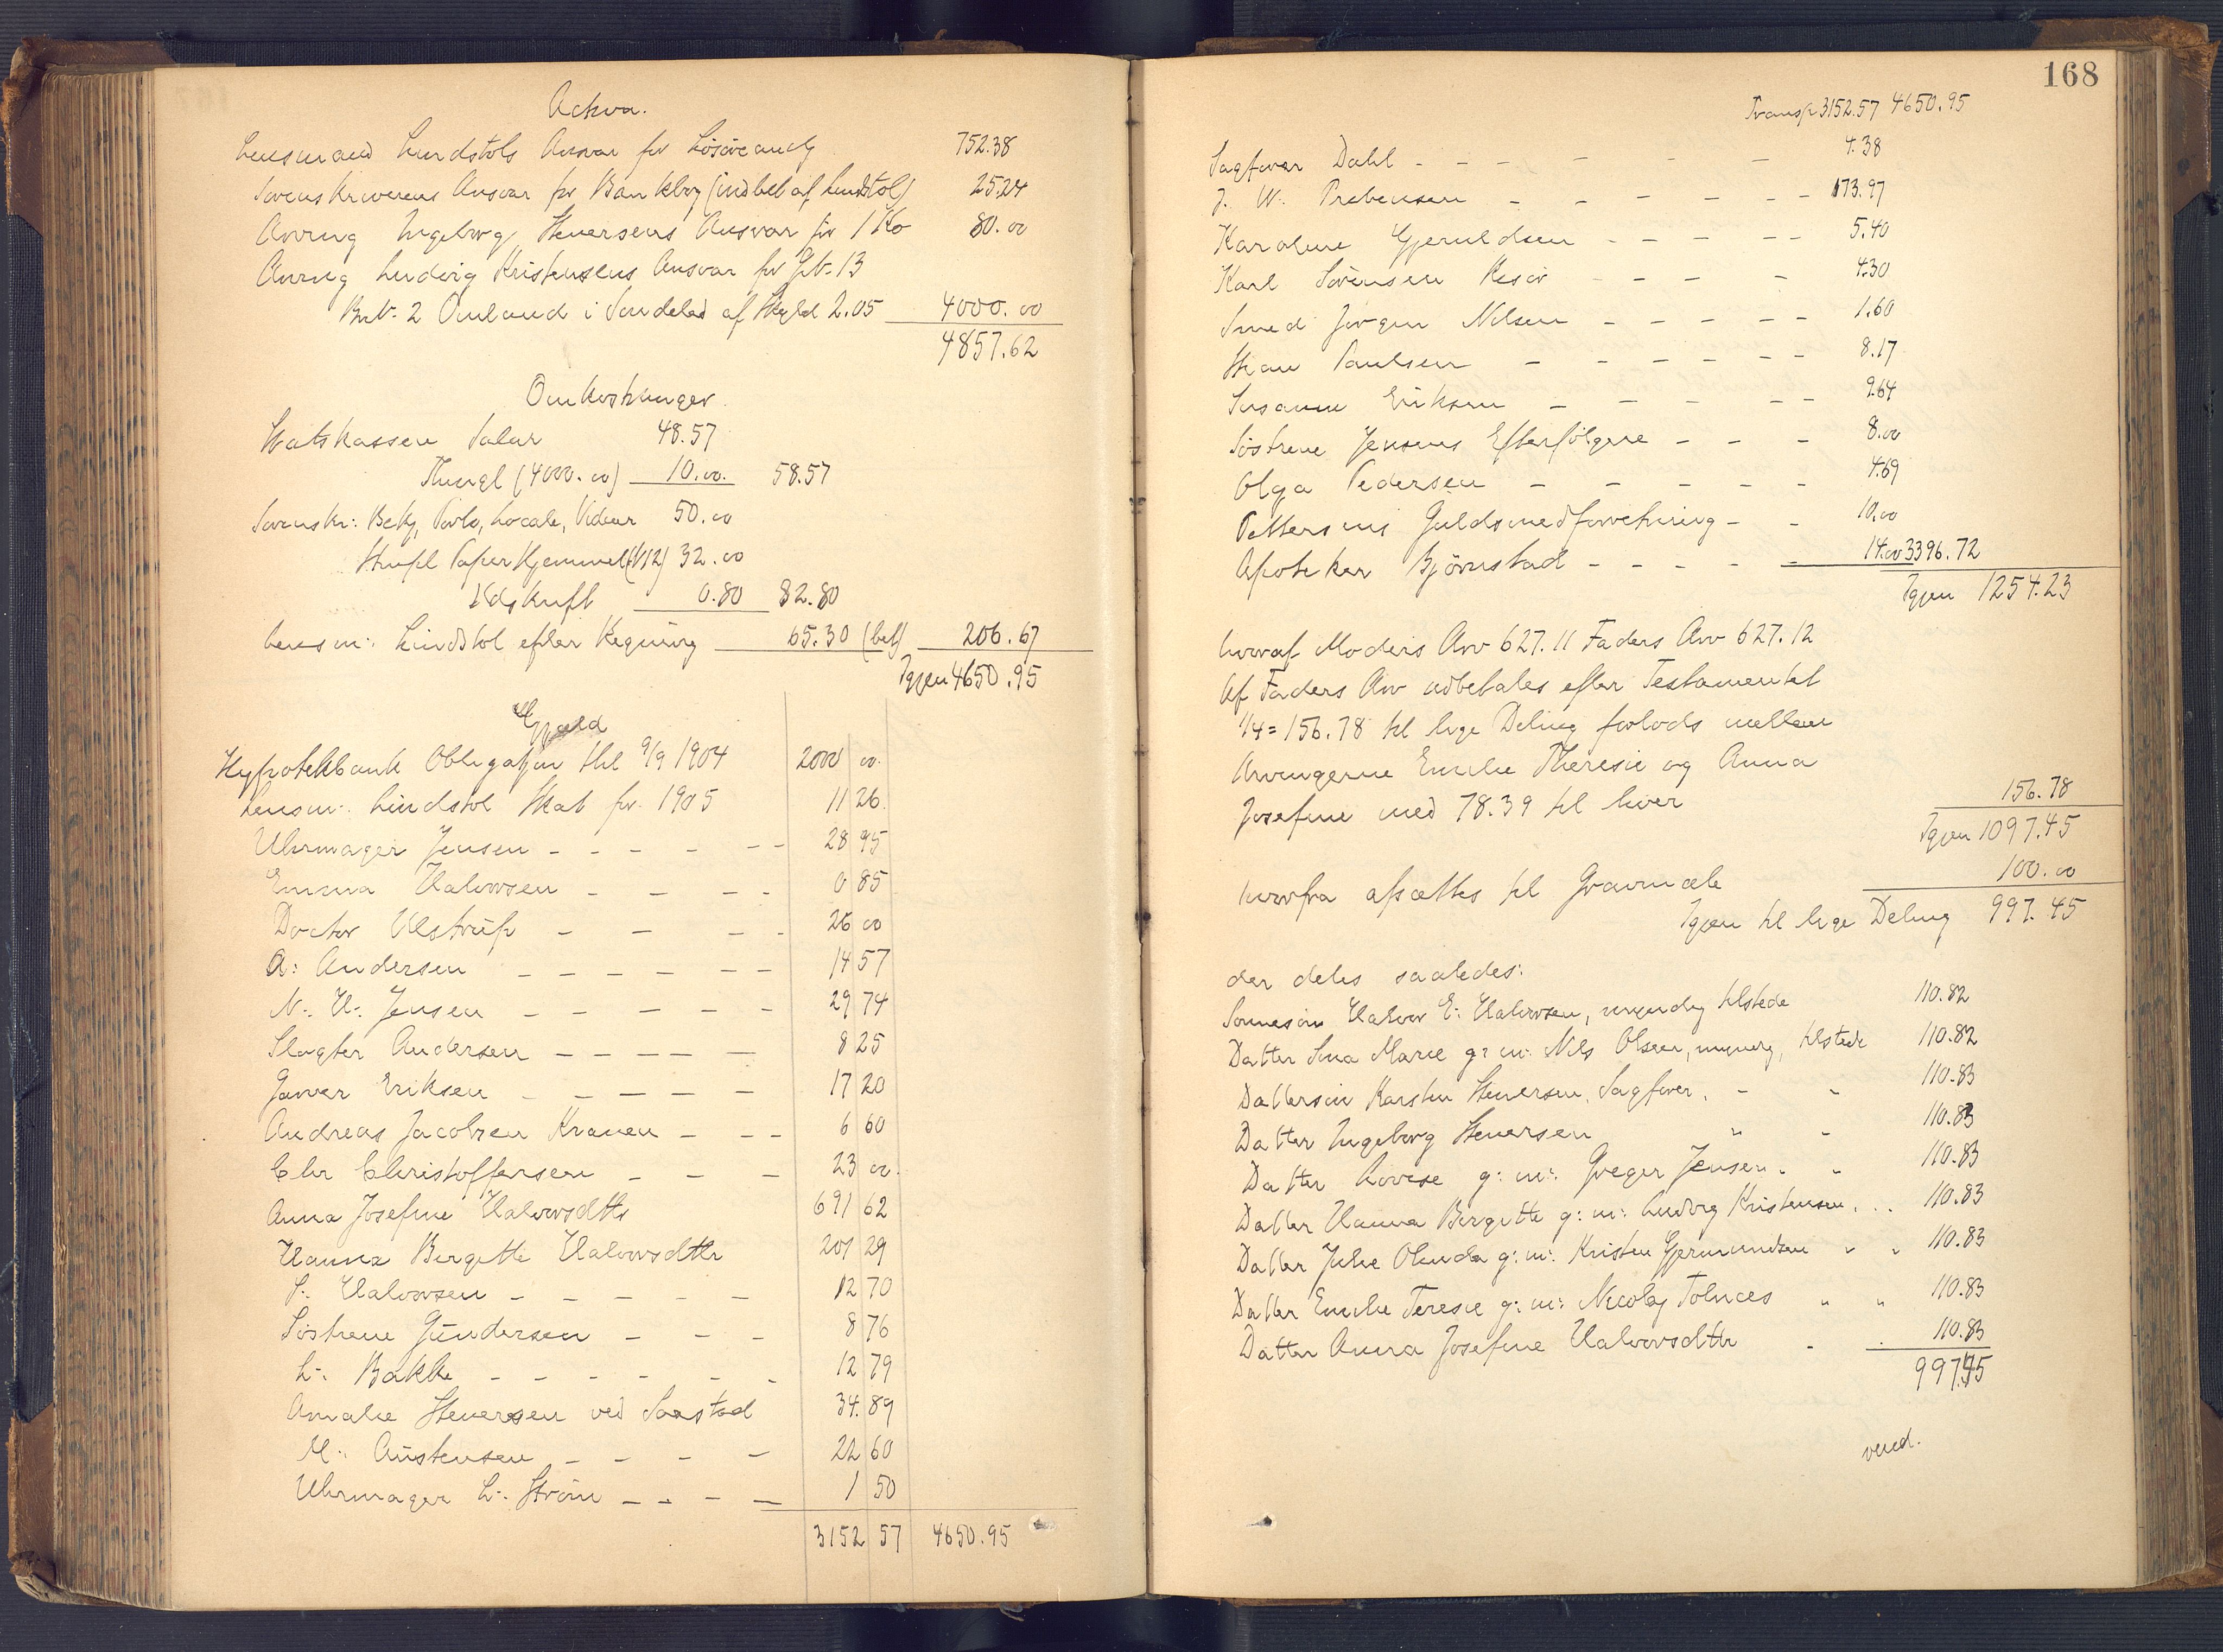 Activa.
Lensmand Lindstøls Ansvar for Løsøreauct 752.38
Sorenskriverens Ansvar for Bankbog (indbet af Lindstøl) 25.24
Arving Ingeborg Stenersens Ansvar for 1 Ko 80.00
Arving Ludvig Kristensens Ansvar for Gr№ 13
Br№ 2 Omland i Søndeled af Skyld 2.05 4000.00
4857.62
Omkostninger
Statskassen Salær 48.57
Thingl (4000.00) 10.00. 58.57
Sorenskr: Bekj, Porto, Locale, Vidner 50.00
Stempl Papir Hjemmel(1/12) 32.00
Udskrift 0.80 82.80
Lensm: Lindstøl efter Regning 65.30 (bet) 206.67
Igjen 4650.95
Gjæld
Hypotekbank Obligation thl 9/9 1904 2000 00.
Lensm: Lindstøl Skat for 1905 11 26.
Uhrmager Jensen - - - - - - 28 95
Emma Halvorsen - - - - 0 85
Doctor Ulstrup - - - - 26 00
A: Andersen - - - - - - 14 57
N: H: Jensen - - - - - 29 74
Slagter Andersen - - - - - 8 25
Garver Eriksen - - - - - 17 20
Andreas Jacobsen Kranen - - - 6 60
Chr Christoffersen - - - 23 00.
Anna Josefine Halvorsdttr 691 62
Hanna Bergitte Halvorsdttr 201 29
S. Halvorsen - - - - - 12 70
Søstrene Gundersen - - - 8 76
L: Bakke - - - - - - - 12 79
Amalie Stenersen ved Saastad 34.89
M: Austensen - - - - 22 60
Uhrmager L: Strøm - - - - 1 50
3152 57 4650.95
168
Transp 3152.57 4650.95
Sagfører Dahl - - - - - - 4.38
J. W. Prebensen - - - - - - 173.97
Karoline Gjeruldsen - - - - - 5.40
Karl Sørensen Risør - - - - 4.30
Smed Jørgen Nilsen - - - - - 1.60
Stian Paulsen - - - - - - 8.17
Susanne Eriksen - - - - - 9.64
Søstrene Jensens Efterfølgere - - - 8.00
Olga Pedersen - - - - - 4.69
Pettersens Guldsmedforretning - - 10.00
Apoteker Bjørnstad - - - - - 14.00 3396.72
Igjen 1254.23
hvoraf Moders Arv 627.11 Faders Arv 627.12
Af Faders Arv udbetales efter Testamentet
1/4 = 156.78 til lige Deling forlods mellem
Arvingerne Emilie Theresie og Anna
Josefine med 78.39 til hver 156.78
Igjen 1097.45
hvorfra afsættes til Gravmæle 100.00
Igjen til lige Deling 997.45
der deles saaledes:
Sønnesøn Halvor E: Halvorsen, myndig tilstede 110.82
Datter Sina Marie g: m: Nils Olsen, myndig, tilstede 110.82
Dattersøn Karsten Stenersen, Sagfører, - - 110.83
Datter Ingeborg Stenersen " - 110.83
Datter Lovise g: m: Greger Jensen - - 110.83
Datter Hanna Bergitte g: m: Ludvig Kristensen . . . 110.83
Datter Julie Olenda g: m: Kristen Gjermundsen " " 110.83
Datter Emilie Teresie g: m: Nicolay Tolnæs " " 110.83
Datter Anna Josefine Halvorsdttr - . 110.83
997.45
vend.